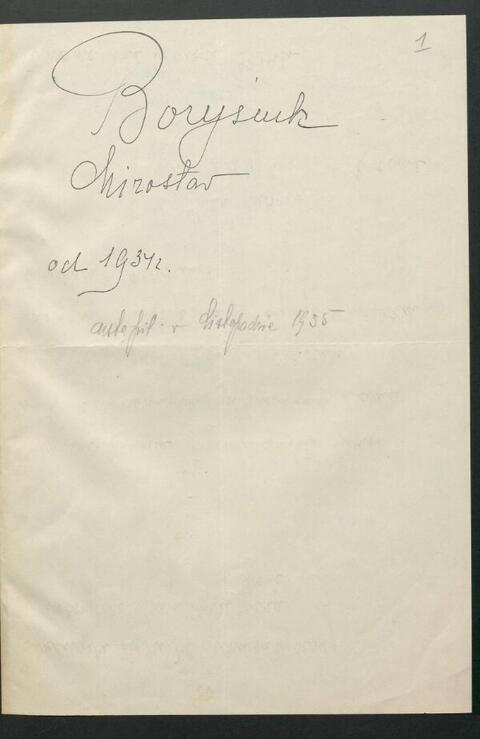 1
Borysiuk
Mirosław
od 1934 r.
ustąpił w listopadzie 1935